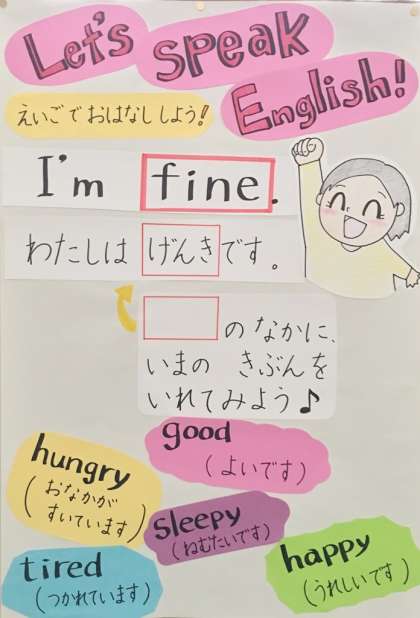 Let's speak
English!
えいごでおはなししよう!
I'm fine.
わたしは げんき です。
のなかに、
いまの きぶんを
いれてみよう♪
good
(よいです)
hungry
(おなかが
すいています)
sleepy
(ねむたいです)
happy
(うれしいです)
tired
(つかれています)